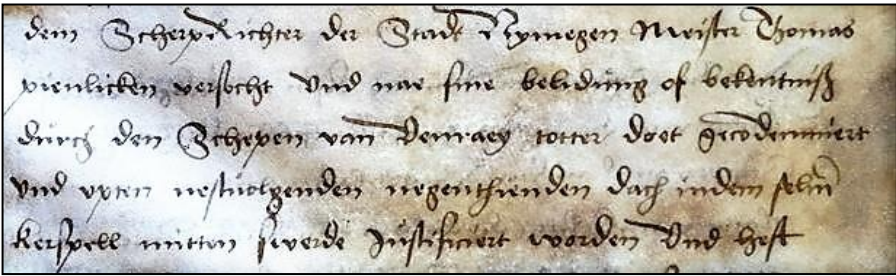 dem ScherpRichter der Stadt Nymegen Meister Thomas
pienlicken versocht Vnd nae sine belidung of bekentniß
durch den Schepen van Venraey totter doet gecodemniert
Vnd vpten nestuolgenden negenthienden dach indem selui
kerspell mitten swerde Justificiert worden Vnd heft